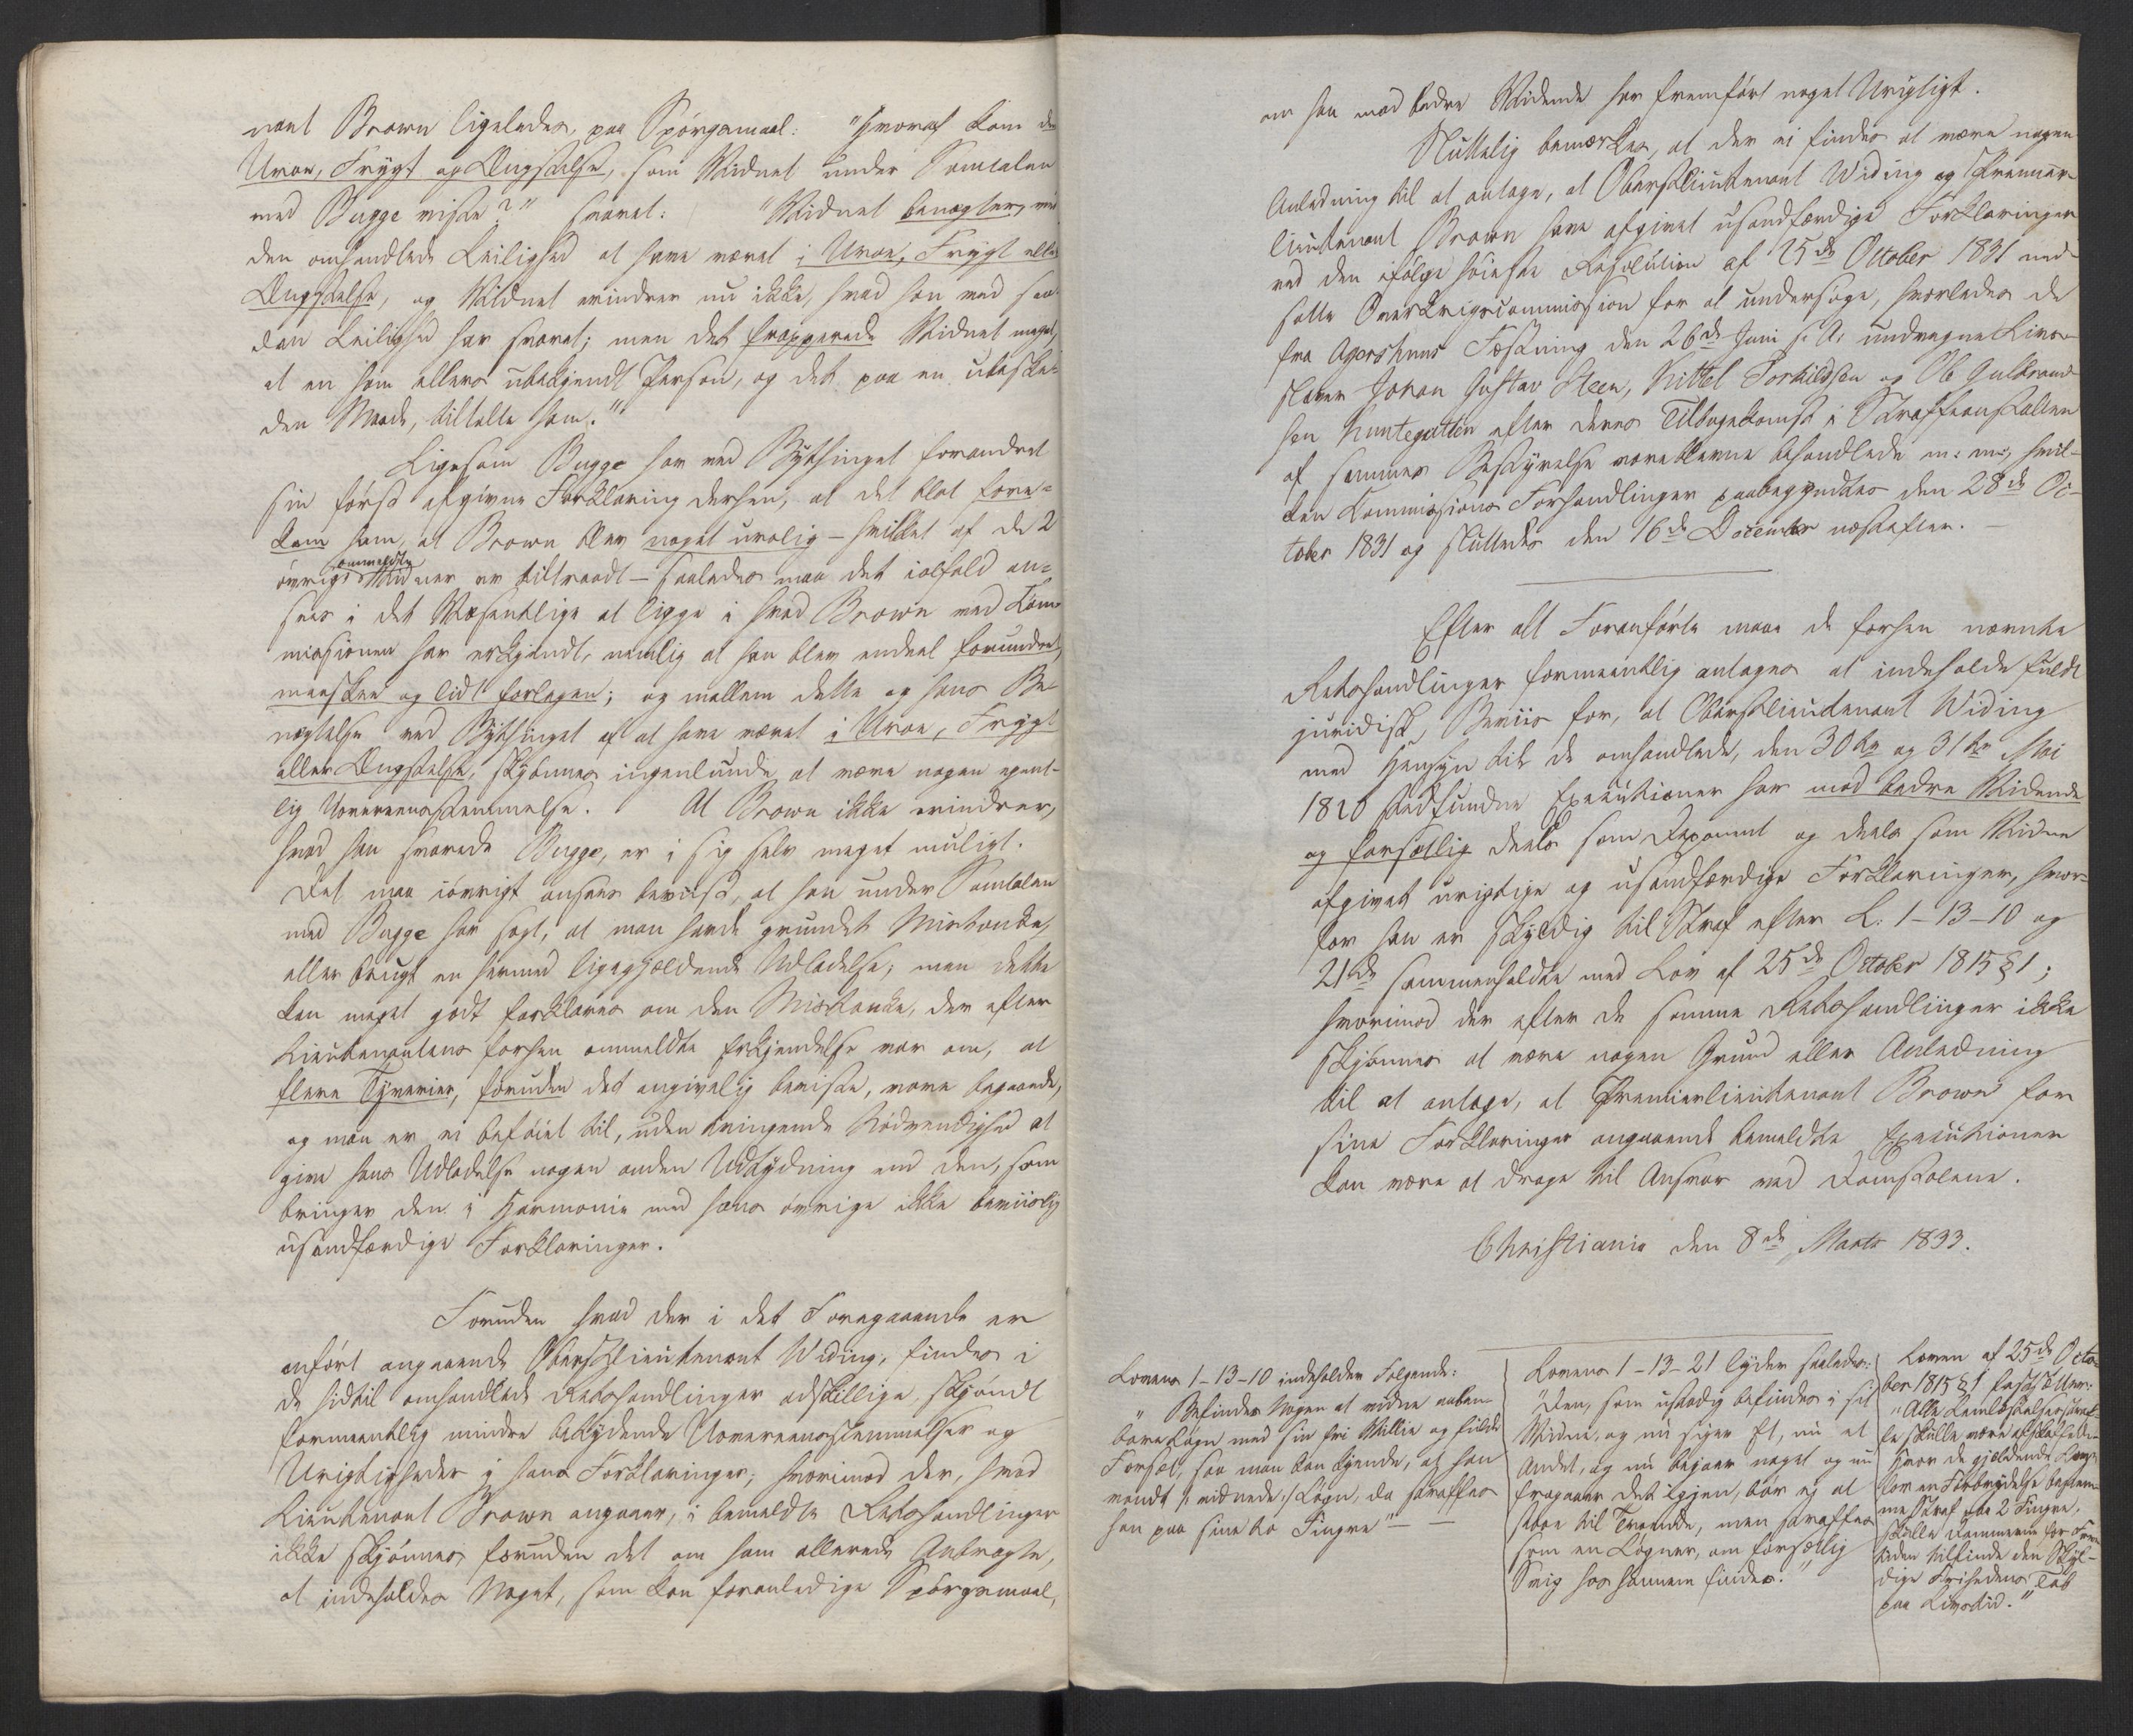 nant Brown ligeledes, paa Spørgsmaal: "Hvoraf kom den
Uroe, Frygt og Ængstelse, som Vidnet under Samtalen
med Bugge viste?" svaret: "Vidnet benægter, ved
den omhandlede Leilighed at have været i Uroe, Frygt eller
Ængstelse, og Vidnet erindrer nu ikke, hvad han ved saa-
dan Leilighed har svaret; men det frapperede Vidnet meget,
at en ham ellers ubekjendt Person, og det paa en ubeskee-
den Maade, tiltalte ham."
Ligesom Bugge har ved Bythinget forandret
sin først afgivne Forklaring derhen, at det blot fore-
kom ham, at Brown blev noget urolig – hvilket af de 2
øvrige ommeldte Vidner er tiltraadt – saaledes maa det ialfald an-
sees i det Væsentlige at ligge i hvad Brown ved Com-
missionen har erkjendt, nemlig at han blev endeel forundret,
maaskee og lidt forlegen; og mellem dette og hans Be-
nægtelse ved Bythinget af at have været i Uroe, Frygt
eller Ængstelse, skjønnes ingenlunde at være nogen egent-
lig Uovereensstemmelse. At Brown ikke erindrer,
hvad han svarede Bugge, er i sig selv meget muligt.
Det maa iøvrigt ansees beviist, at han under Samtalen
med Bugge har sagt, at man havde grundet Mistanke,
eller brugt en hermed ligegjældende Udladelse; men dette
kan meget godt forklares om den Mistanke, der efter
Lieutenantens forhen ommeldte Erkjendelse var om, at
flere Tyverier, foruden det angivelig beviste, vare begaaede,
og man er ei beføiet til, uden tvingende Nødvendighed at
give hans Udladelse nogen anden Udtydning end den, som
bringer den i Harmonie med hans øvrige ikke beviislig
usandfærdige Forklaringer.
Foruden hvad der i det Foregaaende er
anført angaaende Oberstlieutenant Widing, findes i
de hidtil omhandlede Retshandlinger adskillige, skjøndt
formeentlig mindre betydende Uovereensstemmelser og
Urigtigheder i hans Forklaringer; hvorimod der, hvad
Lieutenant Brown angaaer, i bemeldte Retshandlinger
ikke skjønnes, foruden det om ham allerede Anbragte,
at indeholdes Noget, som kan foranledige Spørgsmaal,
om han mod bedre Vidende har fremført noget Urigtigt.
Sluttelig bemærkes, at der ei findes at være nogen
Anledning til at antage, at Oberstlieutenant Widing og Premier-
lieutenant Brown have afgivet usandfærdige Forklaringer
ved den ifølge høieste Resolution af 25de October 1831 ned-
satte Overkrigscommission for at undersøge, hvorledes de
fra Agershuus Fæstning den 26de Juni s. A. undvegne Livs-
slaver Johan Gustav Steen, Kittel Torkildsen og Ole Gulbrand-
sen Huntegutten efter deres Tilbagekomst i Straffeanstalten
af sammes Bestyrelse vare blevne behandlede m: m:, hvil-
ken Kommissions Forhandlinger paabegyndtes den 28de Oc-
tober 1831 og sluttedes den 16de December næstefter. –
Efter alt Foranførte maae de forhen nævnte
Retshandlinger formeentlig antages at indeholde fuldt
juridisk Beviis for, at Oberstlieutenant Widing
med Hensyn til de omhandlede, den 30te og 31te Mai
1820 stedfundne Executioner har mod bedre Vidende
og forsætlig deels som Deponent og deels som Vidne
afgivet urigtige og usandfærdige Forklaringer, hvor-
for han er skyldig til Straf efter L: 1–13–10 og
21de sammenholdte med Lov af 25de October 1815 § 1;
hvorimod der efter de samme Retshandlinger ikke
skjønnes at være nogen Grund eller Anledning
til at antage, at Premierlieutenant Brown for
sine Forklaringer angaaende bemeldte Executioner
kan være at drage til Ansvar ved Domstolene.
Christiania den 8de Marts 1833.
Lovens 1–13–10 indeholder Følgende:
"Befindes Nogen at vidne aaben-
bare Løgn med sin fri Villie og fulde
Forsæt, saa man kan kjende, at han
vandt /: vidnede :/ Løgn, da straffes
han paa sine to Fingre" –
Lovens 1–13–21 lyder saaledes:
"Den, som ustadig befindes i sit
Vidne, og nu siger Et, nu et
Andet, og nu bejaer noget og nu
fragaaer det igjen, bør ej at
stæde til Troende, men straffes
som en Løgner, om forsætlig
Svig hos hannem findes."
Loven af 25de Octo-
ber 1815 § 1 fastsætter:
"Alle Lemlæstelsesstraf-
fe skulle være afskaffede.
Hvor de gjældende Love
for en Forbrydelse bestem-
me Straf paa 2 Fingre,
skulle Dommerne for Frem-
tiden tilfinde den Skyl-
dige Friheds Tab
paa Livstid."